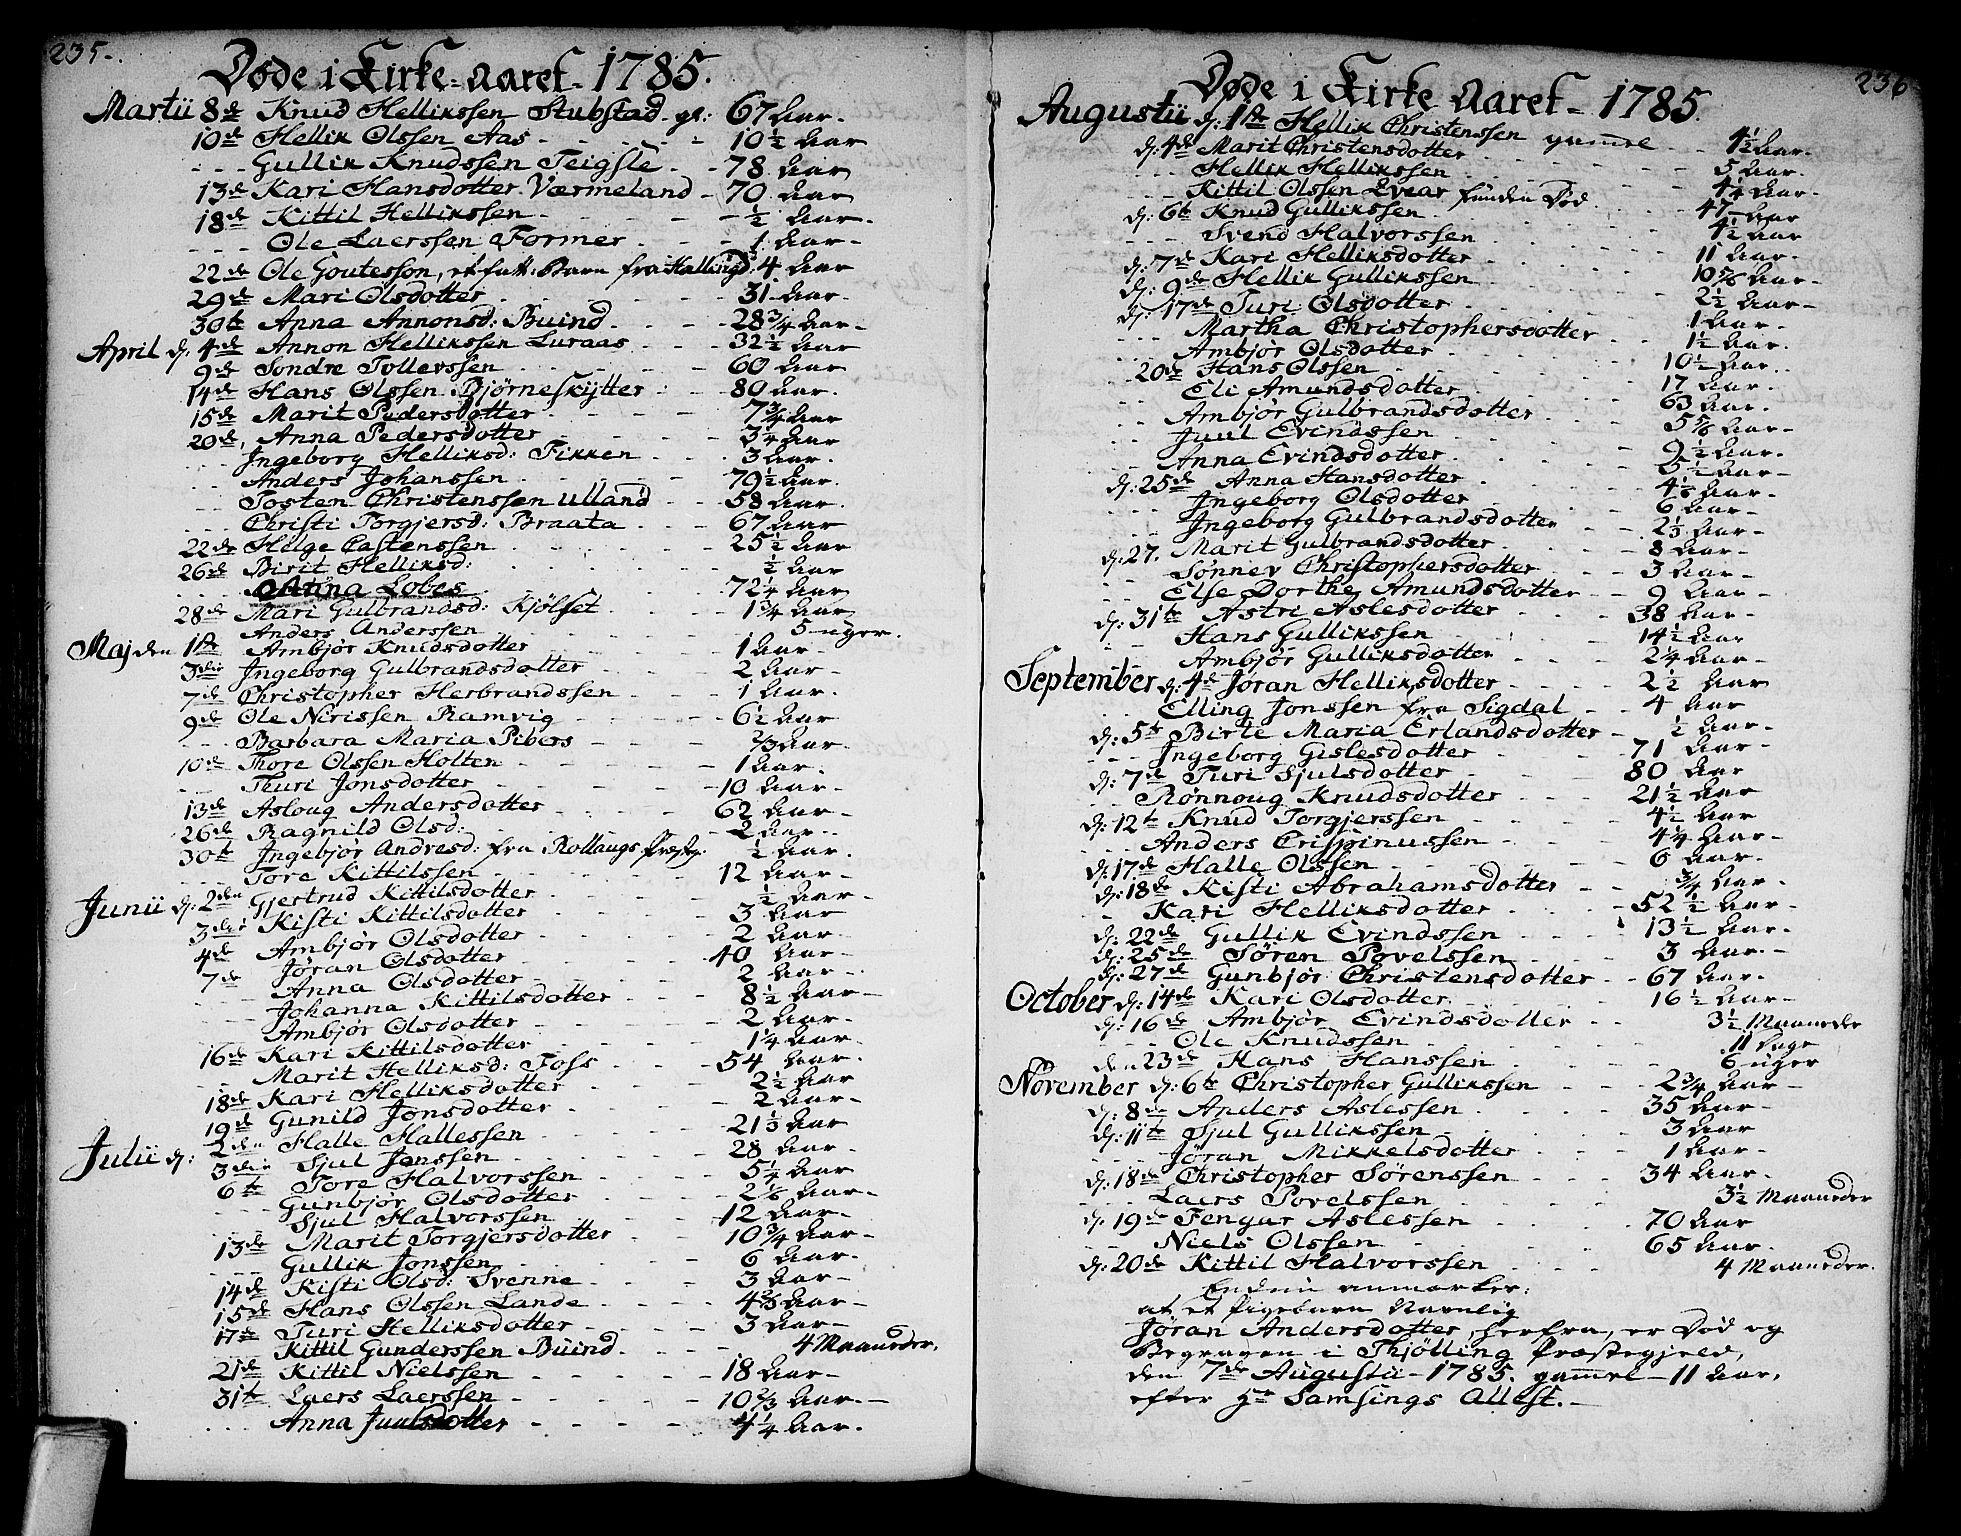 235.
Døde i Kirke-Aaret 1785.
Martii 8de Knud Hellikssen Stubstad gl: 67 Aar.
10de Hellik Olssen Aas 10 1/2 Aar
Gullik Knudssen Teigsle 78 Aar
13de Kari Hansdotter Værmeland 70 Aar
18de Kittil Hellikssen 1/2 Aar.
Ole Laerssen Former 1 Aar
22de Ole Goutesson, et fatt: Barn fra Hallingd: 4 Aar
29de Mari Olsdotter 31 Aar
30te Anna Annonsd: Buind 28 3/4 Aar
April d: 4de Annon Hellikssen Luraas 32 1/2 Aar
9de Sondre Tollevssen 60 Aar
14de Hans Olssen Bjørneskytter 80 Aar.
15de Marit Pedersdotter 7 3/4 Aar
20de, Anna Pedersdotter 3 1/4 Aar
Ingeborg Helliksd: Fikken 3 Aar.
Anders Johanssen 79 1/2 Aar.
Tosten Christenssen Ulland 58 Aar.
Christi Torgjersd: Braata 67 Aar
22de Helge Castenssen 25 1/2 Aar
26de Birit Helliksd: 1/2 Aar
Anna Lobes 72 1/4 Aar
28de Mari Gulbrandsd: Kjølset 1 3/4 Aar
Anders Anderssen 5 uger.
Maj den 1ste Ambjør Knudsdotter 1 Aar
3die Ingeborg Gulbrandsdotter 2 Aar
7de Christopher Herbrandssen 1 Aar.
9de Ole Nirissen Ramvig 6 1/2 Aar
Barbara Maria Pibers 2/3 Aar
10de Thore Olssen Holten 1 Aar.
Thuri Jonsdotter 10 Aar
13de Asloug Andersdotter 62 Aar
26de Ragnild Olsd: 2 Aar
30te Ingebjør Andresd: fra Rollaugs Præstg: 1/2 Aar.
Tore Kittilssen 12 Aar
Junii d: 2den Gjertrud Kittilsdotter 1/2 Aar
3die Kisti Kittilsdotter 3 Aar
4de Ambjør Olsdotter 2 Aar
Jøran Olsdotter 40 Aar
7de Anna Olsdotter 2 Aar
Johanna Kittilsdotter 8 1/2 Aar
Ambjør Olsdotter 2 Aar
16de Kari Kittilsdotter 1 1/4 Aar
Marit Helliksd: Foss 54 Aar.
18de Kari Helliksdotter 2 1/2 Aar
19de Gunild Jonsdotter 2 Aar
Julii d: 2den Halle Hallessen 21 1/3 Aar
3die Sjul Jonssen 28 Aar
6te Tore Halvorssen 5 1/4 Aar
Gunbjør Olsdotter 2 1/3 Aar
Sjul Halvorssen 12 Aar
13de Marit Torgjersdotter 10 3/4 Aar
Gullik Jonssen 6 Aar
14de Kisti Olsd: Svenne 3 Aar
15de Hans Olssen Lande 4 2/3 Aar
17de Turi Helliksdotter 3 Aar
Kittil Gunderssen Buind 4 Maaneder.
21de Kittil Nielssen 18 Aar
31te Laers Laerssen 10 2/3 Aar
Anna Juulsdotter 4 1/4 Aar.
236
Døde i Kirke Aaret 1785.
Augustii d: 1ste Hellik Christenssen gammel 4 1/2 Aar
d: 4de Marit Christensdotter 5 Aar
Hellik Hellikssen 4 1/4 Aar
Kittil Olssen Qvear funden Død 47 Aar
d: 6te Knud Gullikssen 4 1/2 Aar
Svend Halvorssen 11 Aar
d: 7de Kari Helliksdotter 10 5/6 Aar
d: 9de Hellik Gullikssen 2 1/2 Aar
d: 17de Turi Olsdotter 1 Aar
Martha Christophersdotter 1 1/2 Aar
Ambjør Olsdotter 10 1/2 Aar
20de Hans Olssen 17 Aar
Eli Amundsdotter 63 Aar
Ambjør Gulbrandsdotter 5 5/6 Aar
Juul Evindssen 9 1/2 Aar
Anna Evindsdotter 5 1/2 Aar
d: 25de Anna Hansdotter 4 1/2 Aar
Ingeborg Olsdotter 6 Aar
Ingeborg Gulbrandsdotter 2 1/3 Aar
d: 27. Marit Gulbrandsdotter 8 Aar
Sønnev Christophersdotter 3 Aar
Else Dorthe Amundsdotter 9 Aar
d: 31te Astri Aslesdotter 38 Aar
Hans Gullikssen 14 1/2 Aar
Ambjør Gulliksdotter 2 1/4 Aar
September d: 4de Jøran Helliksdotter 2 1/2 Aar
Elling Jonssen fra Sigdal 4 Aar
d: 5te Birte Maria Erlandsdotter 1/2 Aar
Ingeborg Gislesdotter 71 Aar
d: 7de Turi Sjulsdotter 80 Aar
Rønnoug Knudsdotter 21 1/2 Aar
d: 12te Knud Torgjerssen 4 1/2 Aar
Anders Crispinussen 4 1/4 Aar
d: 17de Halle Olssen 6 Aar
d: 18de Kisti Abrahamsdotter 3/4 Aar
Kari Helliksdotter 52 1/2 Aar
d: 22de Gullik Evindssen 13 1/2 Aar
d: 25de Søren Povelssen 3 Aar
d: 27de Gunbjør Christensdotter 67 Aar
October d: 14de Kari Olsdotter 16 1/2 Aar
d: 16de Ambjør Evindsdotter 3 1/2 Maaneder
Ole Knudssen 11 Dage
den 23de Hans Hanssen 6 uger
November d: 6te Christopher Gullikssen 2 3/4 Aar
d: 8de Anders Aslessen 35 Aar
d: 11te Sjul Gullikssen 3 Aar
Jøran Mikkelsdotter 1 Aar
d: 18de Christopher Sørenssen 34 Aar
Laers Povelssen 3 1/2 Maaneder
d: 19de Fengar Aslessen 70 Aar
Niels Olssen 65 Aar
d: 20de Kittil Halvorssen 4 Maaneder.
Endnu anmærkes:
at et Pigebarn Navnlig
Jøran Andersdotter, herfra, er Død og
Begraven i Thjølling Præstegjeld,
den 7de Augustii 1785. gammel 11 Aar,
efter Hr Samsings Attest.